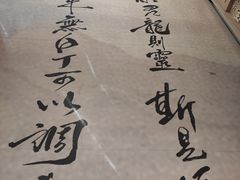 有龍則靈斯是
來無白丁可以調